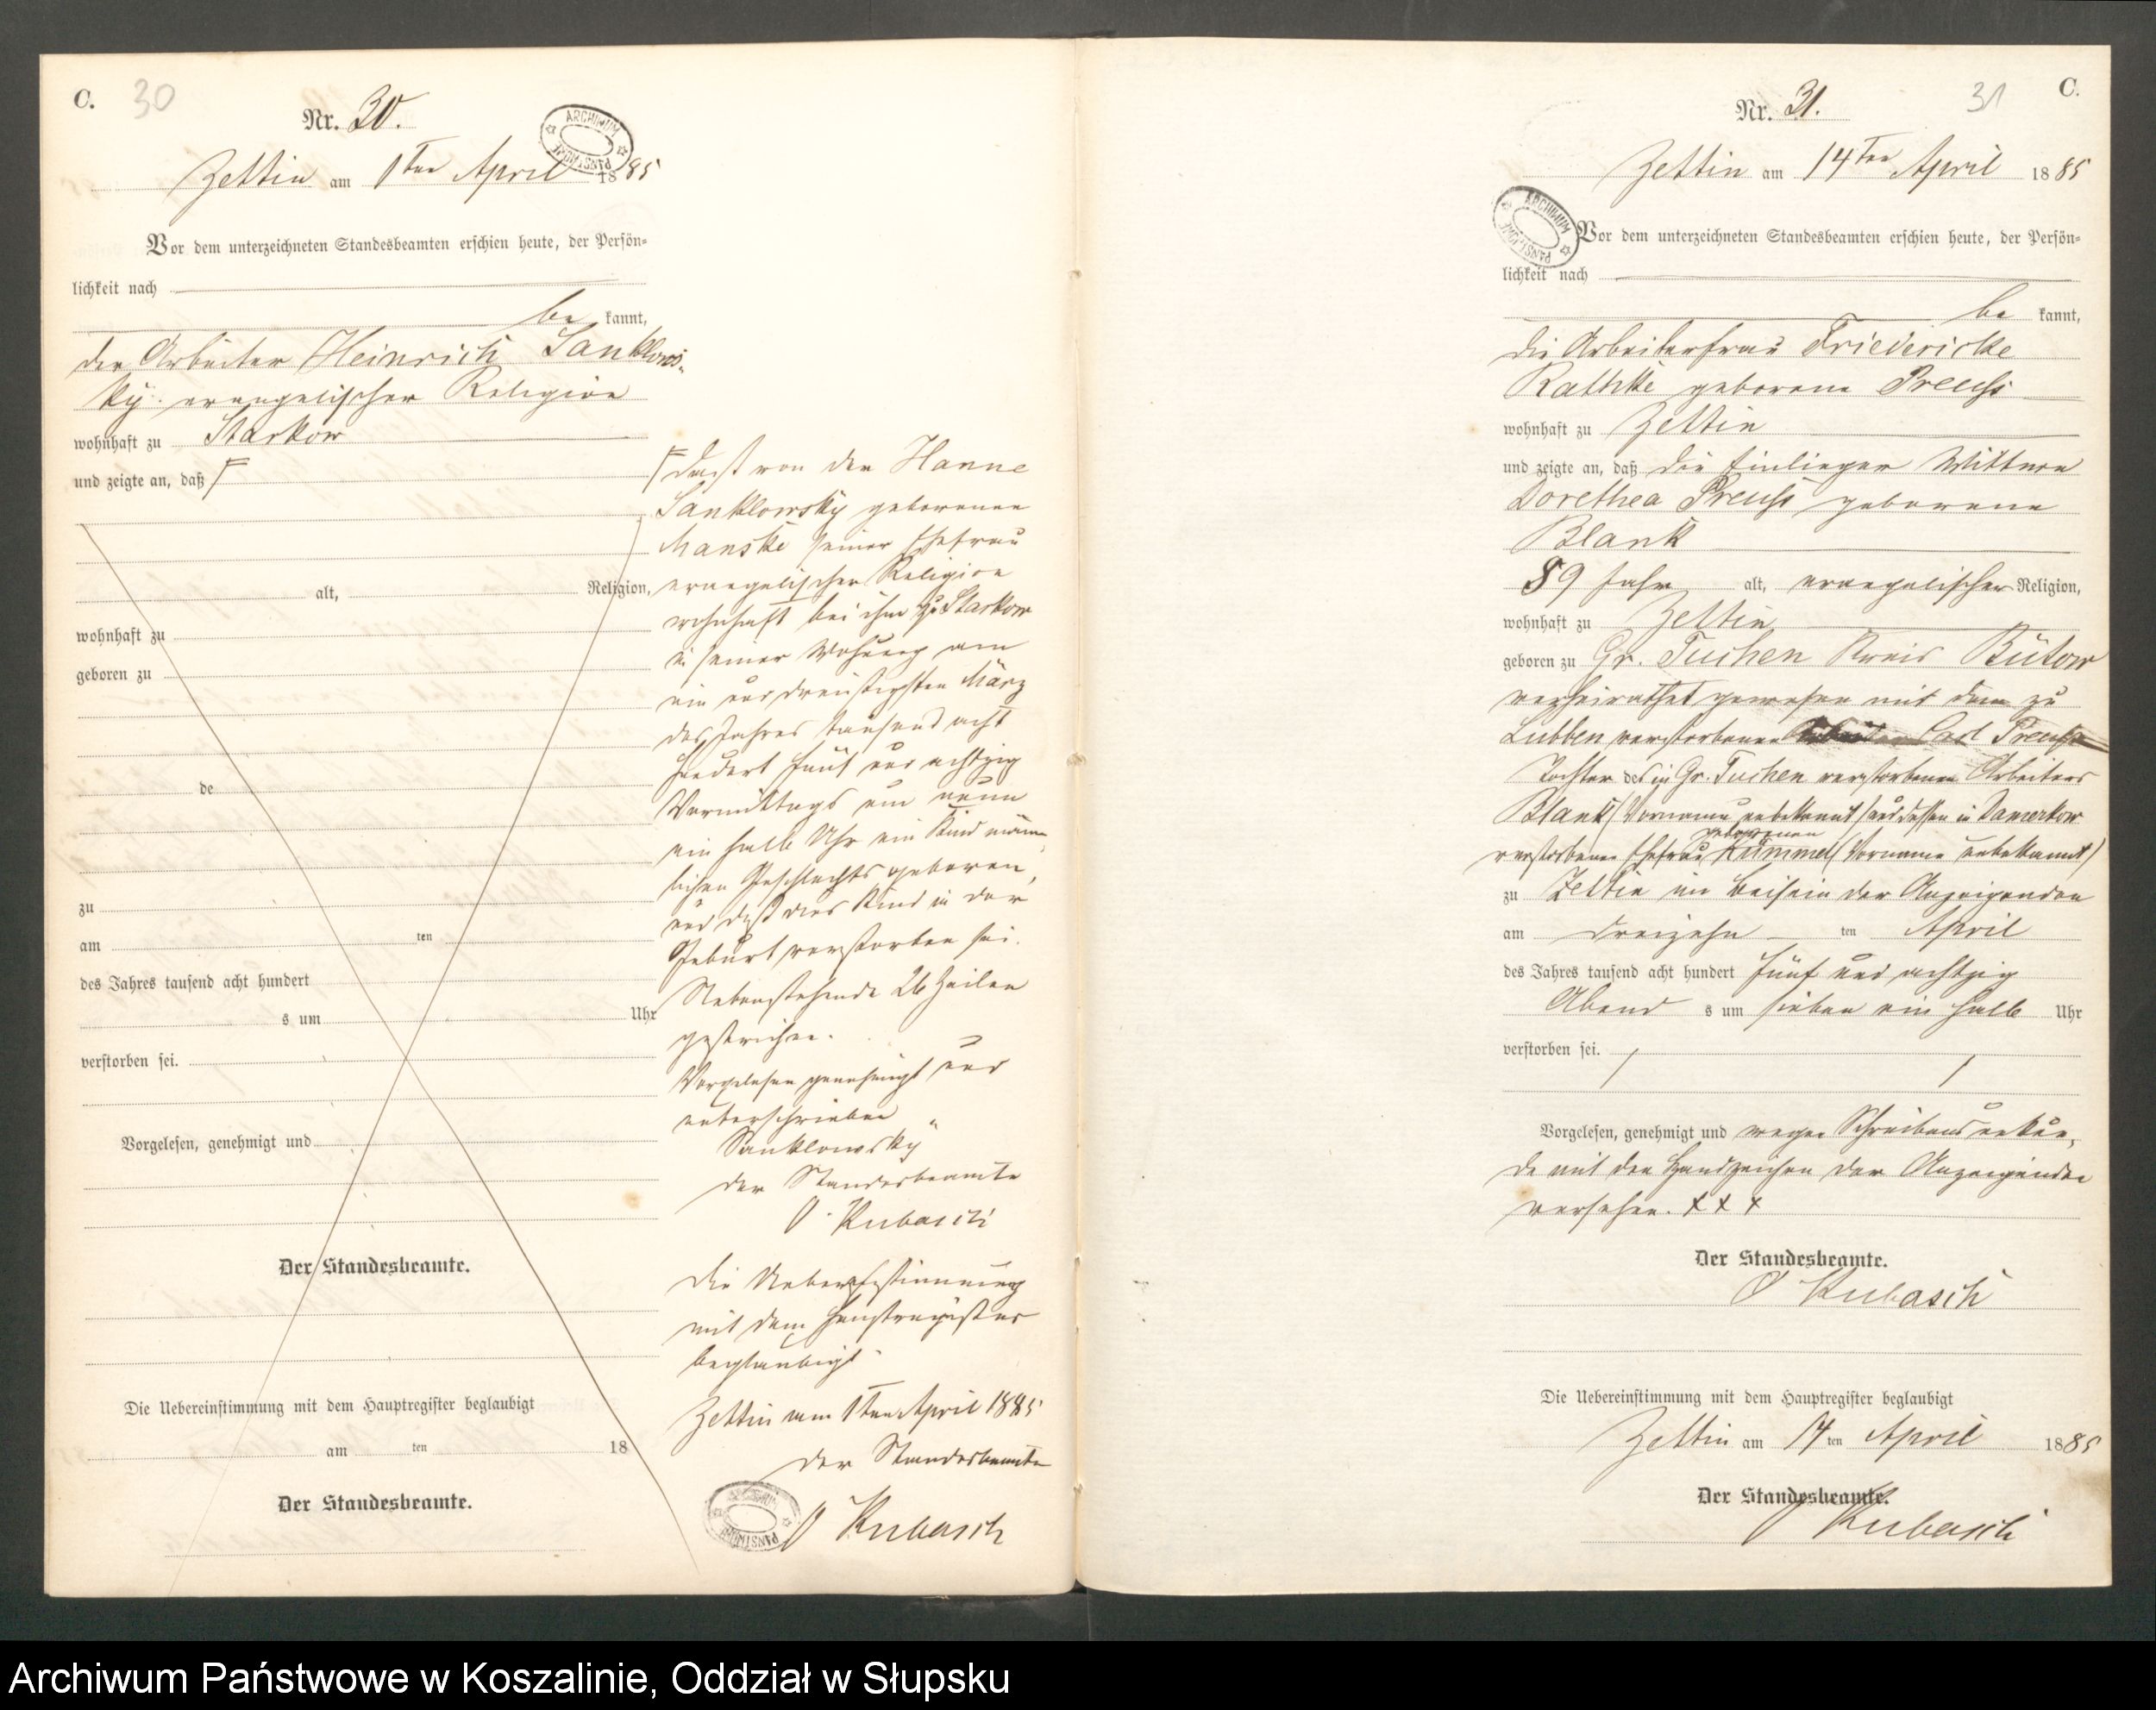 C. 30
Nr. 30.
ARCHIWUM
PAŃSTWOWE
Zettin am 1ten April 1885
Vor dem unterzeichneten Standesbeamten erschien heute, der Persön-
lichkeit nach
be kannt,
der Arbeiter Heinrich Sanklows-
ky evangelischer Religion
wohnhaft zu Starkow
und zeigte an, daß
alt, Religion,
wohnhaft zu
geboren zu
de
zu
am ten
des Jahres tausend acht hundert
s um Uhr
verstorben sei.
Vorgelesen, genehmigt und
Der Standesbeamte.
Die Uebereinstimmung mit dem Hauptregister beglaubigt
am ten 18
Der Standesbeamte.
daß von der Hanne
Sanklowsky geborenen
Manske seiner Ehefrau
evangelischer Religion
wohnhaft bei ihm zu Starkow
in seiner Wohnung am
ein und dreißigsten März
des Jahres tausend acht
hundert fünf und achtzig
Vormittags um neun
ein halb Uhr ein Kind männ-
lichen Geschlechts geboren,
und daß dies Kind in der
Geburt verstorben sei.
Nebenstehende 26 Zeilen
gestrichen.
Vorgelesen genehmigt und
unterschrieben
Sanklowsky
Der Standesbeamte
O Kubasch
Die Uebereinstimmung
mit dem Hauptregister
beglaubigt
Zettin am 1ten April 1885
Der Standesbeamte
O Kubasch
ARCHIWUM
PAŃSTWOWE
31 C.
Nr. 31.
Zettin am 14ten April 1885
ARCHIWUM
PAŃSTWOWE
Vor dem unterzeichneten Standesbeamten erschien heute, der Persön-
lichkeit nach
be kannt,
die Arbeiterfrau Friedericke
Rathke geborene Preuss
wohnhaft zu Zettin
und zeigte an, daß die Einlieger Wittwe
Dorethea Preuss geborene
Blank
89 Jahr alt, evangelischer Religion,
wohnhaft zu Zettin
geboren zu Gr. Tuchen Kreis Bütow
verheirathet gewesen mit dem zu
Lubben verstorbenen Carl Preuss
Tochter des in Gr. Tuchen verstorbenen Arbeiters
Blank (Vorname unbekannt) und dessen in Damerkow
geborenen
verstorbenen Ehefrau Kümmel (Vorname unbekannt)
zu Zettin im Beisein der Anzeigenden
am dreizehn ten April
des Jahres tausend acht hundert fünf und achtzig
Abend s um sieben ein halb Uhr
verstorben sei.
Vorgelesen, genehmigt und wegen Schreibensunkun-
de mit den Handzeichen der Anzeigenden
versehen. + + +
Der Standesbeamte.
O Kubasch
Die Uebereinstimmung mit dem Hauptregister beglaubigt
Zettin am 14 ten April 1885
Der Standesbeamte.
O Kubasch
Archiwum Państwowe w Koszalinie, Oddział w Słupsku